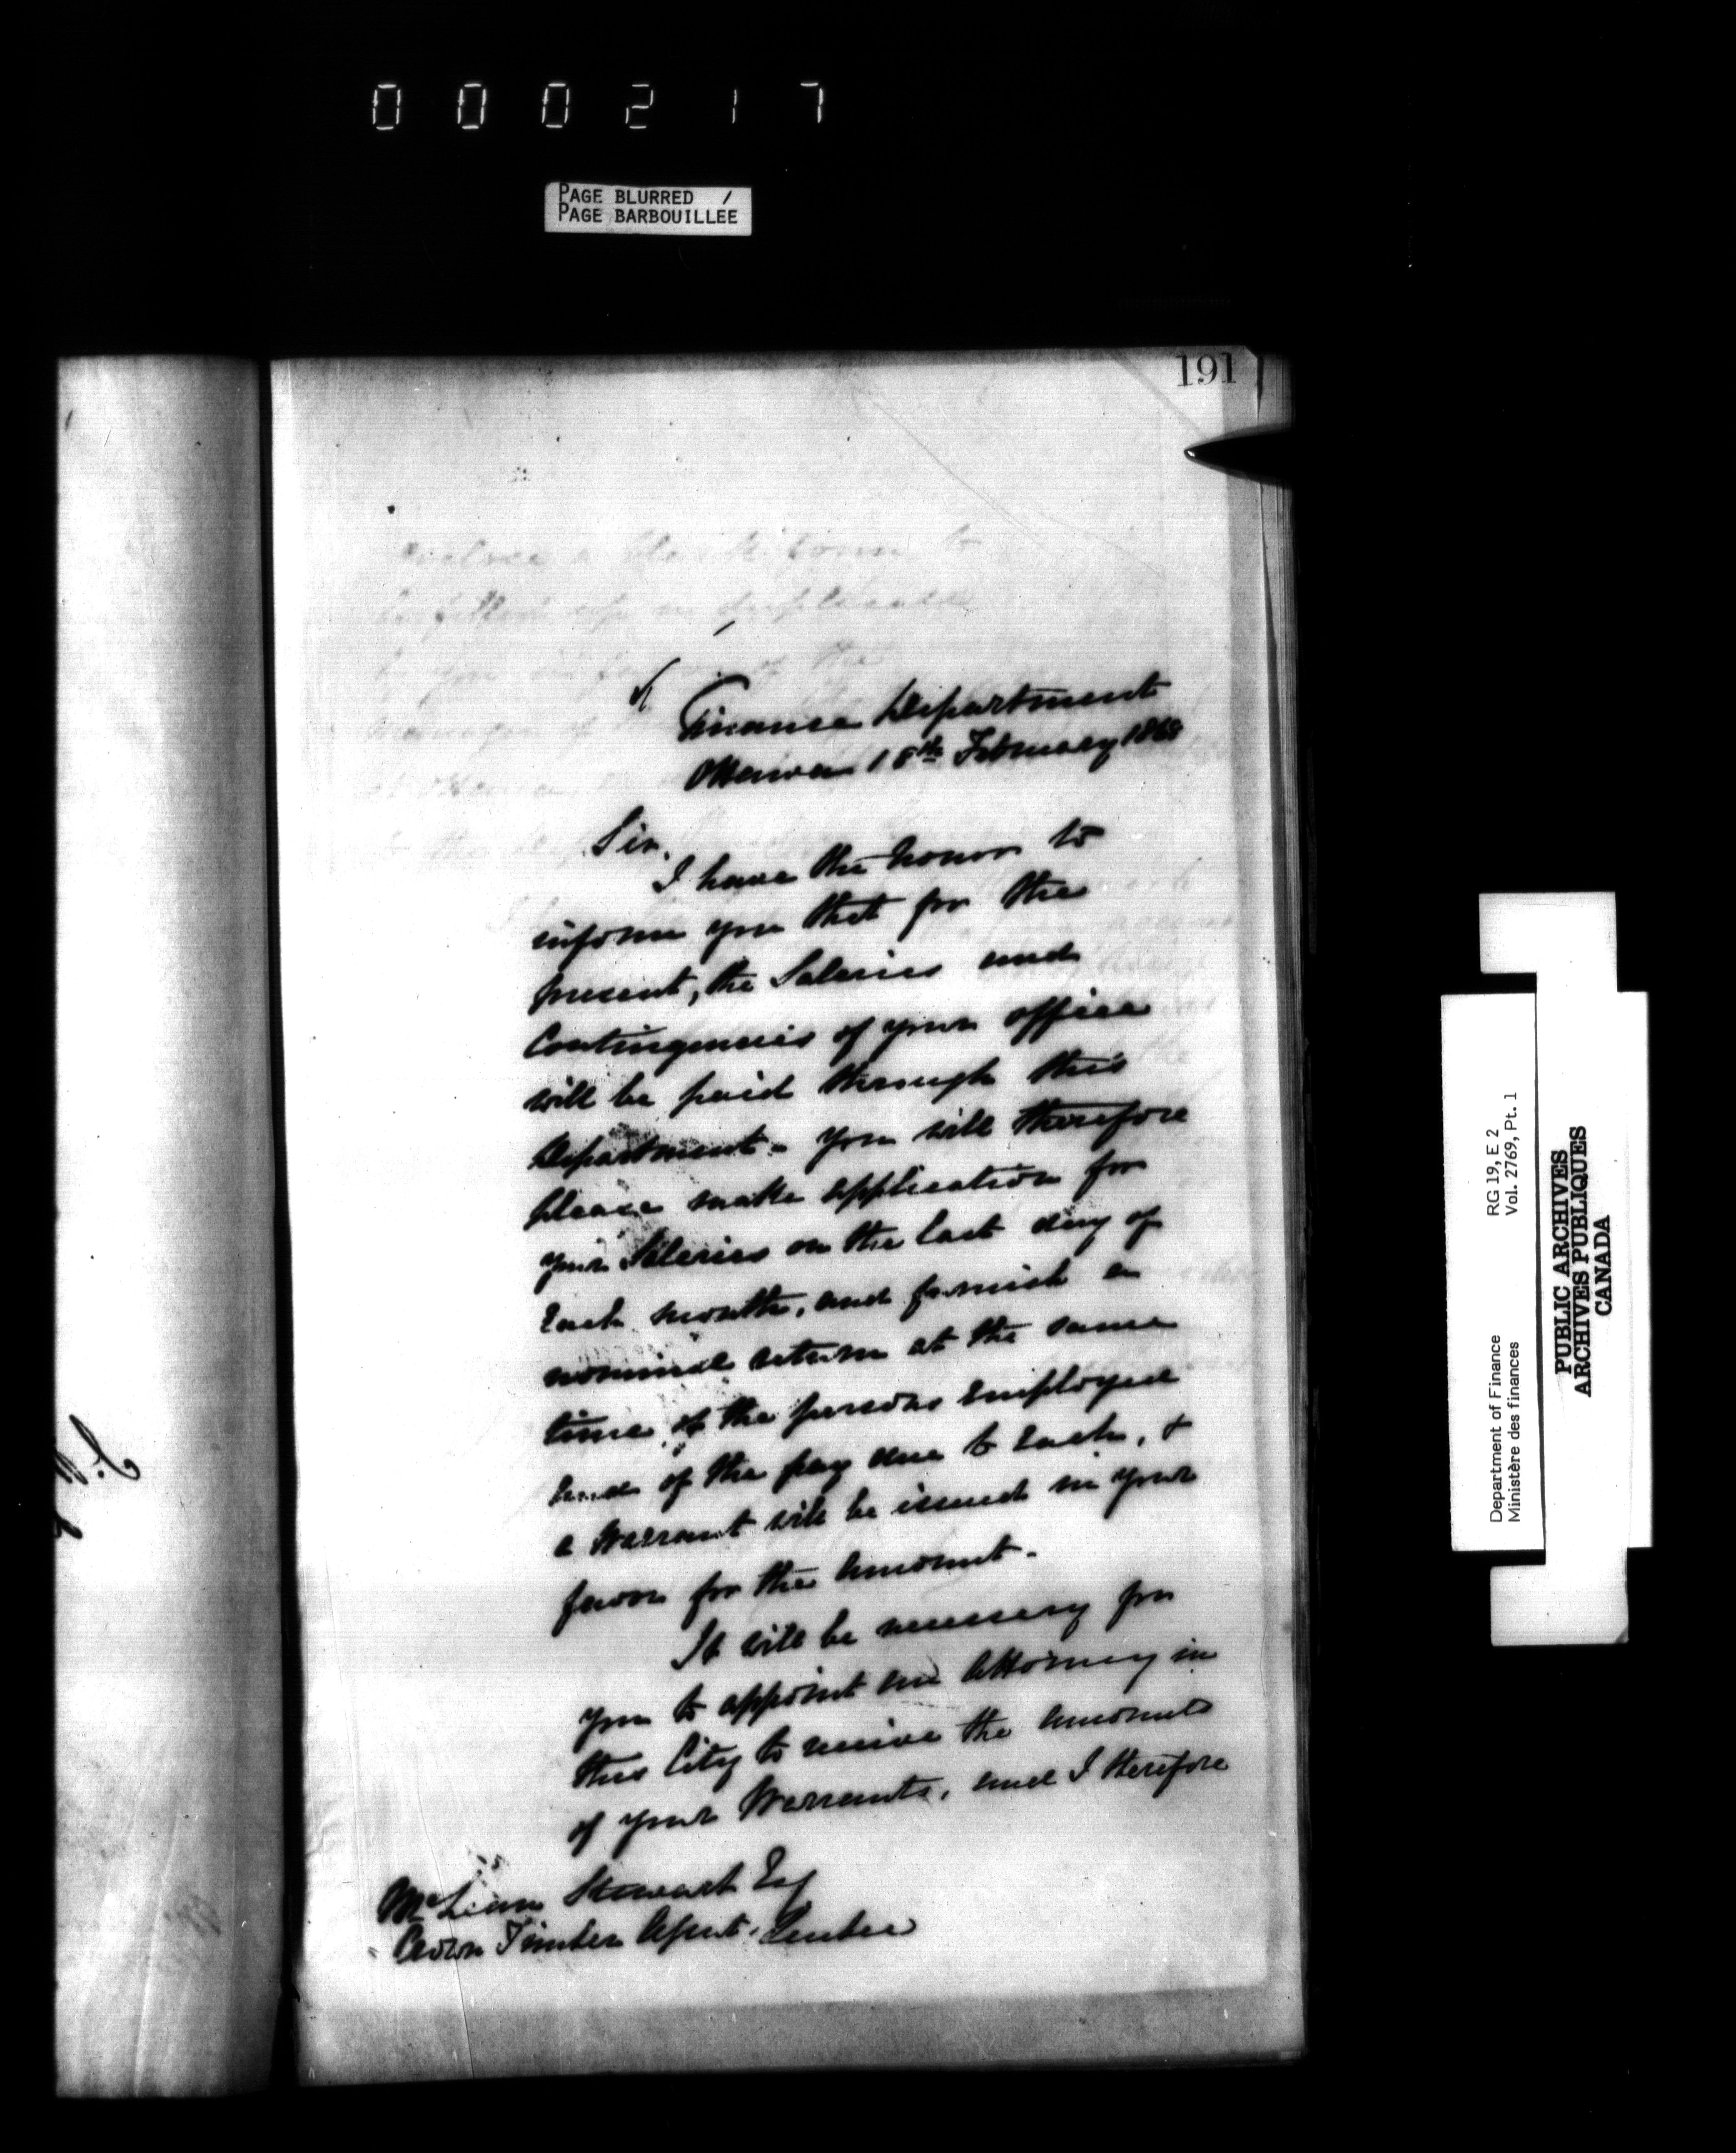 000217
PAGE BLURRED /
PAGE BARBOUILLEE
191
Finance Department
Ottawa 18th February 1868
Sir,
I have the honor to
inform you that for the
present, the Salaries and
Contingencies of your office
will be paid through this
Department - You will therefore
please make application for
your Salaries on the last day of
Each month, and furnish a
nominal return at the same
time of the persons Employed
and of the pay due to Each, &
a Warrant will be issued in your
favor for the Amount -
It will be necessary for
you to appoint an Attorney in
this City to receive the Amounts
of your Warrants, and I therefore
McLean Stewart Esq
Crown Timber Agent, Quebec
Department of Finance RG 19, E 2
Ministère des finances Vol. 2769, Pt. 1
PUBLIC ARCHIVES
ARCHIVES PUBLIQUES
CANADA